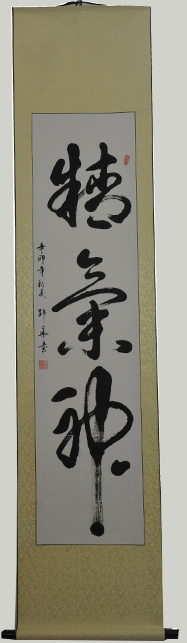 精氣神
辛卯年初夏